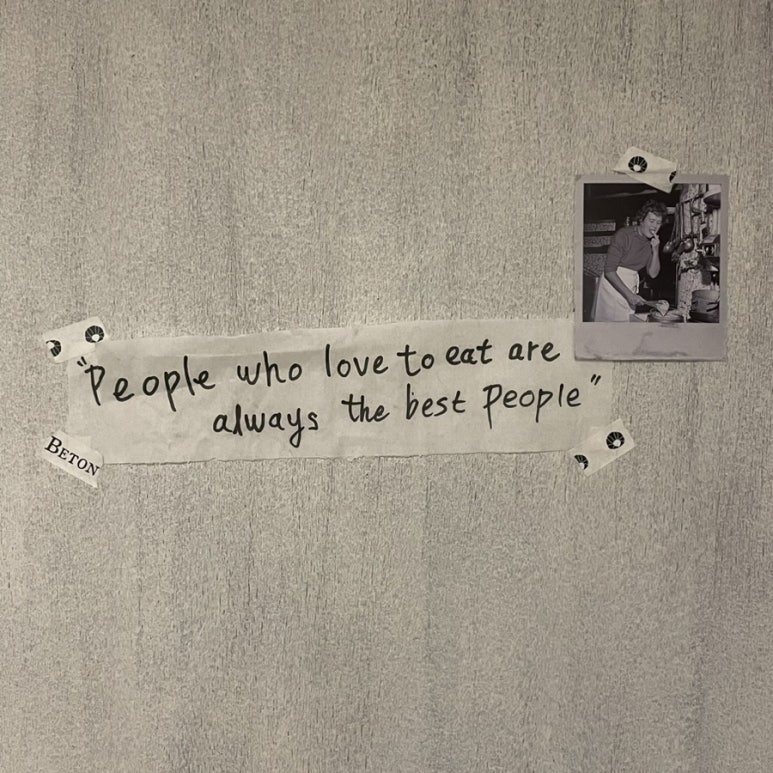 "People who love to eat are
always the best People"
BETON